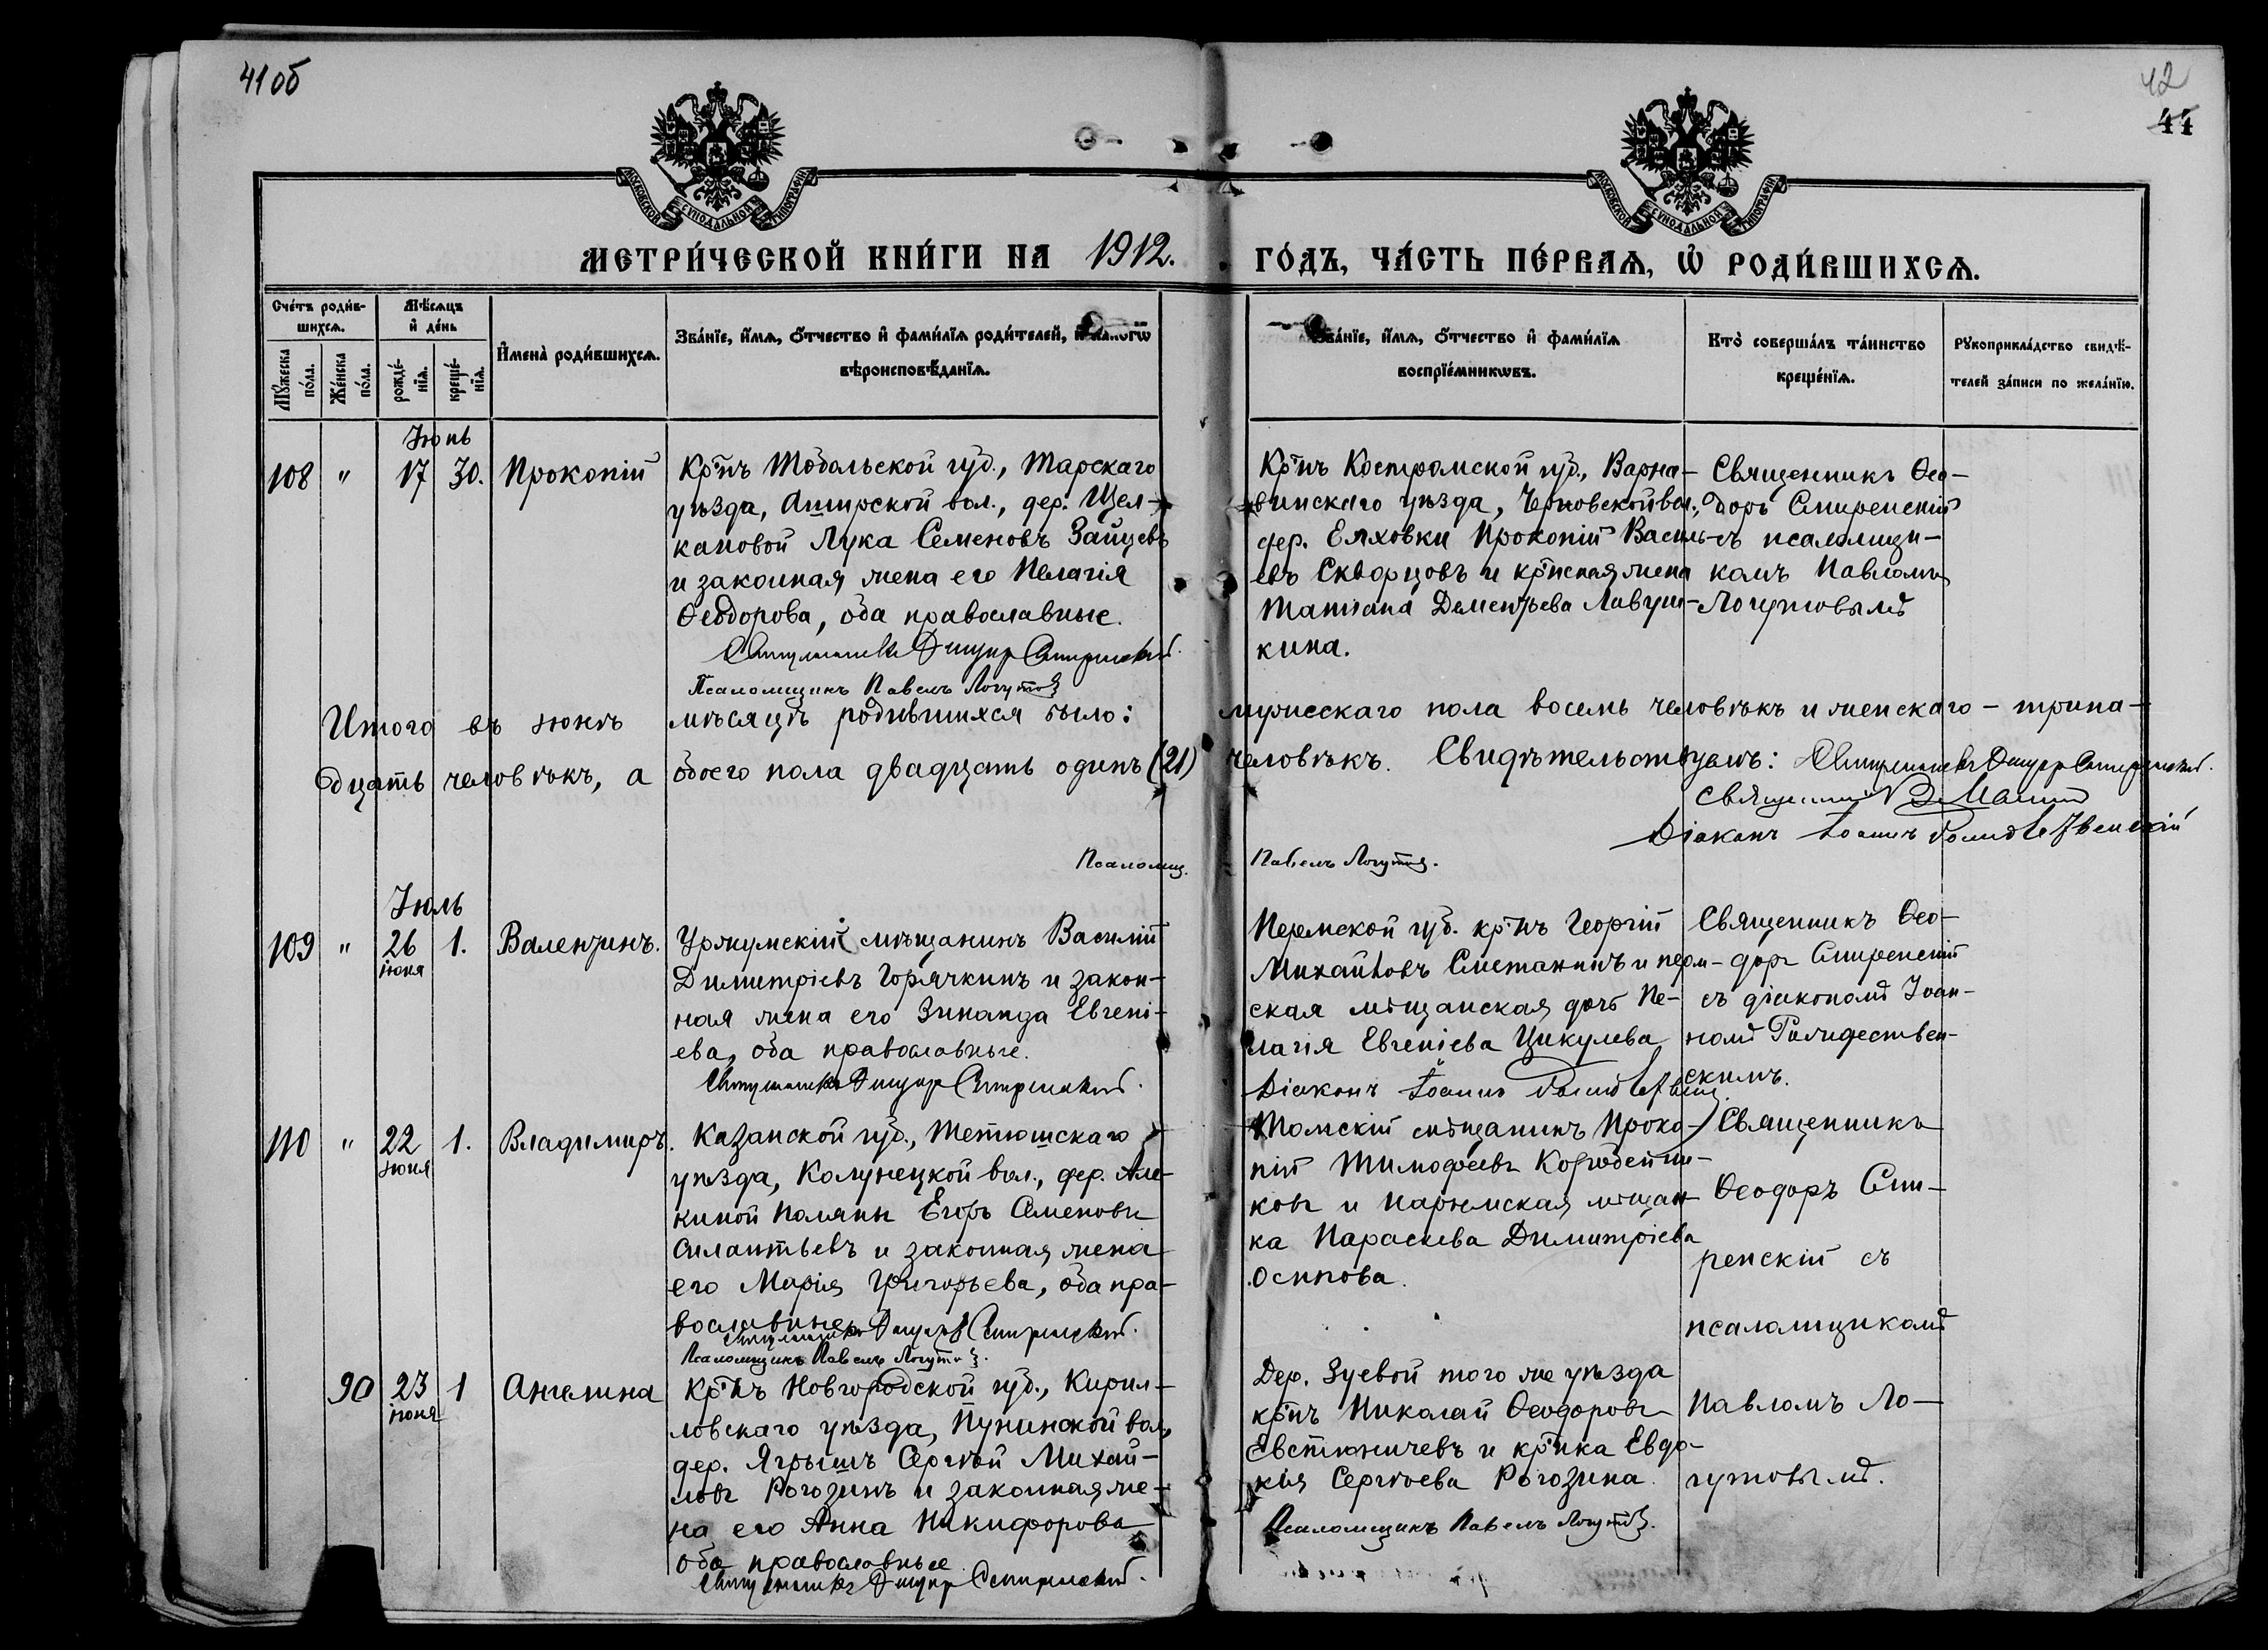 41об
42
44
МОСКОВСКОЙ СѴНОДАЛЬНОЙ ТИПОГРАФІИ
МОСКОВСКОЙ СѴНОДАЛЬНОЙ ТИПОГРАФІИ
МЕТРИ́ЧЕСКОЙ КНИ́ГИ НА 1912. ГО́ДЪ, ЧА́СТЬ ПЕ́РВАѦ, Ѽ РОДИ́ВШИХСѦ.
Сче́тъ роди́в-
шихсѧ.
Мꙋ́жеска
по́ла.
Же́нска
по́ла.
Мѣ́сѧцъ
и҆ де́нь
рожде́-
нїѧ.
креще́-
нїѧ.
И҆мена̀ роди́вшихсѧ.
Зва́нїе, и҆́мѧ, ѻ҆́тчество и҆ фами́лїѧ роди́телей, и҆ како́гѡ
вѣроисповѣ́данїѧ.
Зва́нїе, и҆́мѧ, ѻ҆́тчество и҆ фами́лїѧ
воспрїе́мникѡвъ.
Кто̀ соверша́лъ та́инство
креще́нїѧ.
Рꙋкоприкла́дство свидѣ́-
телей за́писи по жела́нїю.
Іюнь
108 " 17 30. Прокопій
Кр-нъ Тобольской губ., Тарскаго
уѣзда, Аширской вол., дер. Щел-
кановой Лука Семеновъ Зайцевъ
и законная жена его Пелагія
Ѳеодорова, оба православные.
Псаломщикъ Павелъ Логутов
Кр-нъ Костромской губ., Варна-
винскаго уѣзда, Черновской вол.,
дер. Еляховки Прокопій Василь-
евъ Скворцовъ и кр-нская жена
Татіана Дементьева Лавруш-
кина.
Священникъ Ѳео-
доръ Смиренскій
съ псаломщи-
комъ Павломъ
Логутовымъ
Итого въ іюнѣ мѣсяцѣ родившихся было: мужескаго пола восемь человѣкъ и женскаго - трина-
дцать человѣкъ, а обоего пола двадцать одинъ (21) человѣкъ. Свидѣтельствуемъ:
Священник
Діаконъ Іоаннъ Рождественскій
Псаломщ. Павелъ Логутов.
Іюль
109 " 26 1. Валентинъ.
іюня
Уржумскій мѣщанинъ Василій
Димитріевъ Горячкинъ и закон-
ная жена его Зинаида Евгені-
ева, оба православные.
Пермской губ. кр-нъ Георгій
Михайловъ Сметанинъ и перм-
ская мѣщанская дочь Пе-
лагія Евгеніева Цикулева
Діаконъ Іоаннъ Рождествен
Священникъ Ѳео-
доръ Смиренскій
съ діакономъ Іоан-
номъ Рождествен-
скимъ.
110 " 22 1. Владимиръ.
іюня
Казанской губ., Тетюшскаго
уѣзда, Колунецкой вол., дер. Але-
киной Поляны Егоръ Семеновъ
Силантьевъ и законная жена
его Марія Григорьева, оба пра-
вославные
Псаломщикъ Павелъ Логутов.
Томскій мѣщанинъ Проко-
пій Тимофеевъ Коробейни-
ковъ и нарымская мѣщан-
ка Параскева Димитріева
Осипова.
Священникъ
Ѳеодоръ Сми-
ренскій съ
псаломщикомъ
Павломъ Ло-
гутовымъ.
90 23 1 Ангелина
іюня
Кр-нъ Новгородской губ., Кирил-
ловскаго уѣзда, Пунинской вол,
дер. Ягрышъ Сергѣй Михай-
ловъ Рогозинъ и законная же-
на его Анна Никифорова
оба православные
Дер. Зуевой того же уѣзда
кр-нъ Николай Ѳеодоровъ
Евстюничевъ и кр-нка Евдо-
кія Сергѣева Рогозина.
Псаломщикъ Павелъ Логутов.